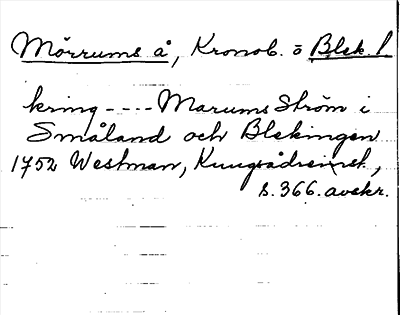 Mörrums å, Kronob. o Blek. l
kring ---- Marums Ström i
Småland och Blekingen
1752 Westman, Kungsådreinst.,
s. 366. avskr.